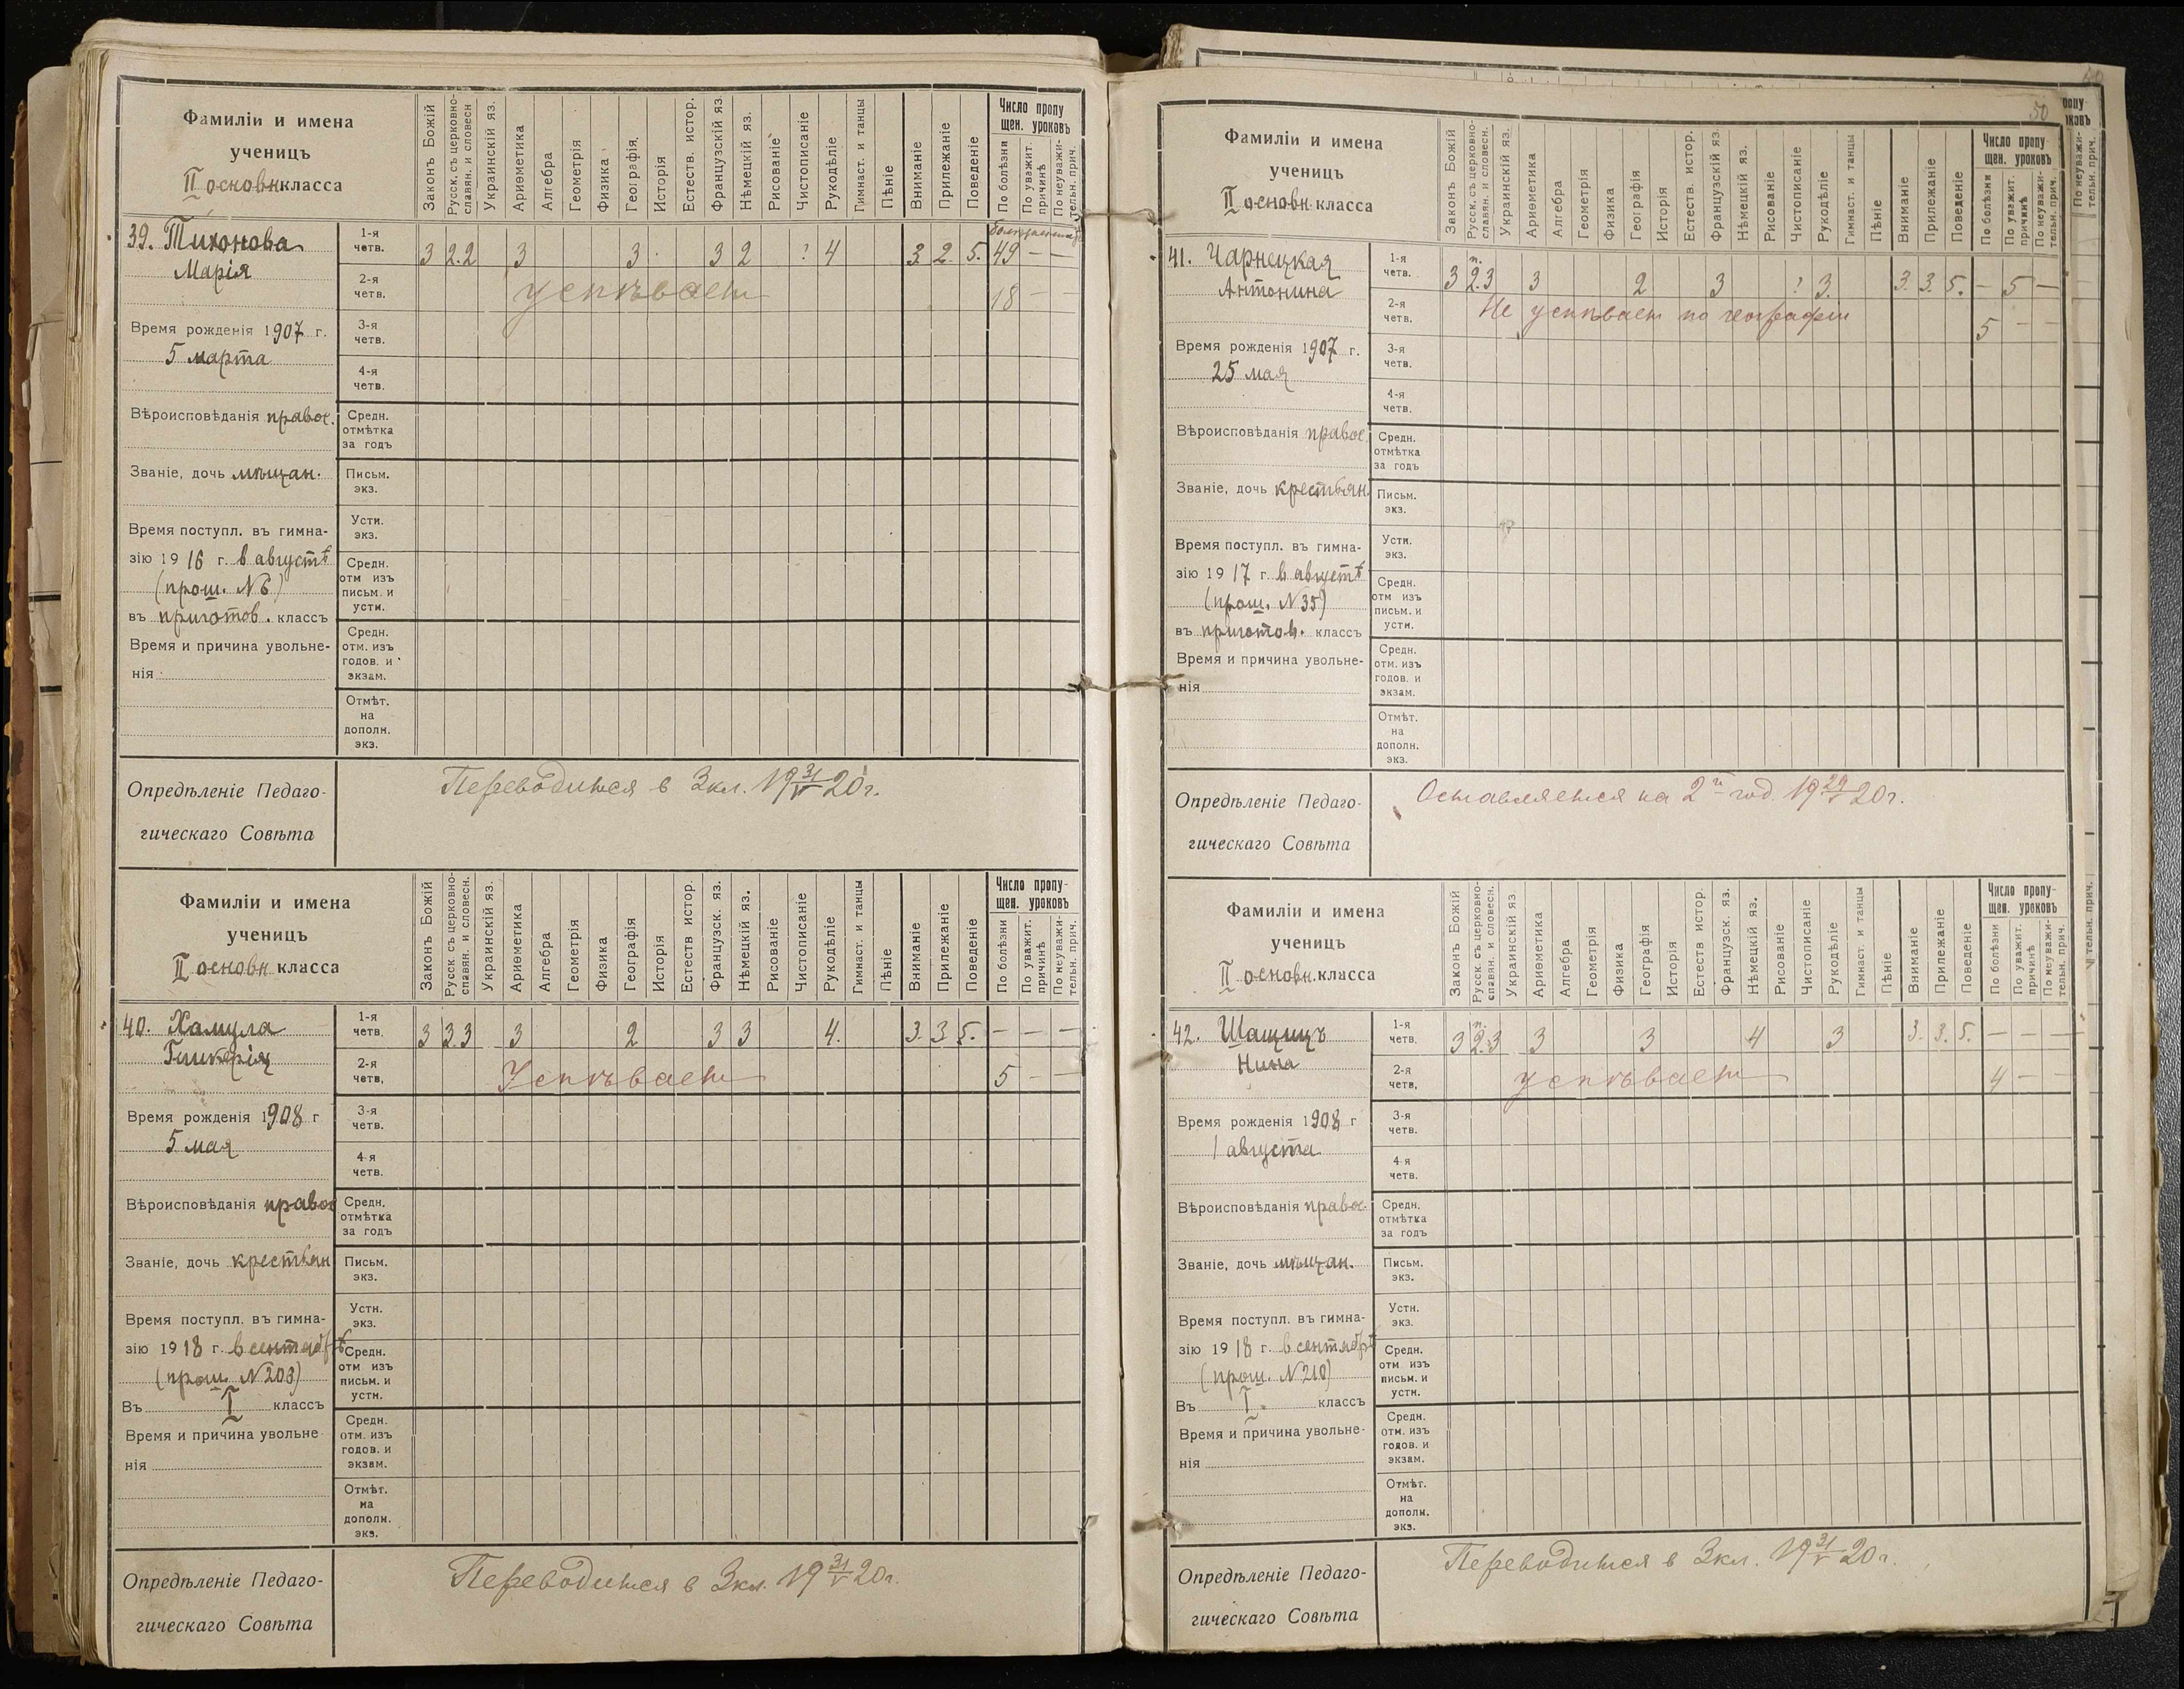 Фамиліи и имена
ученицъ
II основн класса
Законъ Божій
Русск. съ церковно-
славян. и словесн
Украинскій яз.
Ариѳметика
Алгебра
Геометрія
Физика
Географія
Исторія
Естеств. истор.
Французскій яз.
Нѣмецкій яз.
Рисованіе
Чистописаніе
Рукодѣліе
Гимнаст. и танцы
Пѣніе
Вниманіе
Прилежаніе
Поведеніе
Число пропу
щен. уроковъ
По болѣзни
По уважит.
причинѣ
По неуважи-
тельн. прич.
39. Тихонова
Марія
Время рожденія 1907 г.
5 марта
Вѣроисповѣданія правос.
Званіе, дочь мѣщан.
Время поступл. въ гимна-
зію 1916 г. в августѣ
(прош. N 6)
въ приготов. классъ
Время и причина увольне-
нія
1-я
четв.
3 2.2 3 3 3 2 ! 4 3. 2. 5. 49 — —
2-я
четв.
успѣвает 18 — —
3-я
четв.
4-я
четв.
Средн.
отмѣтка
за годъ
Письм.
экз.
Устн.
экз.
Средн.
отм изъ
письм. и
устн.
Средн.
отм. изъ
годов. и
экзам.
Отмѣт.
на
дополн.
экз.
Опредѣленіе Педаго-
гическаго Совѣта
Переводится в 3 кл. 19 31/V 20 г.
Фамиліи и имена
ученицъ
II основн класса
Законъ Божій
Русск. съ церковно-
славян. и словесн.
Украинскій яз.
Ариѳметика
Алгебра
Геометрія
Физика
Географія
Исторія
Естеств истор.
Французск. яз.
Нѣмецкій яз.
Рисованіе
Чистописаніе
Рукодѣліе
Гимнаст. и танцы
Пѣніе
Вниманіе
Прилежаніе
Поведеніе
Число пропу-
щен. уроковъ
По болѣзни
По уважит.
причинѣ
По неуважи-
тельн. прич.
40. Хамула
Гликерія
Время рожденія 1908 г
5 мая
Вѣроисповѣданія правос
Званіе, дочь крестьян
Время поступл. въ гимна-
зію 1918 г. в сентябрѣ
(прош. N 203)
Въ I классъ
Время и причина увольне
нія
1-я
четв.
3 3.3 3 2 3 3 4. 3. 3 5. — — —
2-я
четв,
Успѣвает 5 — —
3-я
четв.
4-я
четв.
Средн.
отмѣтка
за годъ
Письм.
экз.
Устн.
экз.
Средн.
отм изъ
письм. и
устн.
Средн.
отм. изъ
годов. и
экзам.
Отмѣт.
на
дополн.
экз.
Опредѣленіе Педаго-
гическаго Совѣта
Переводится в 3 кл. 19 31/V 20 г.
50
Фамиліи и имена
ученицъ
II основн. класса
Законъ Божій
Русск. съ церковно-
славян. и словесн.
Украинскій яз.
Ариѳметика
Алгебра
Геометрія
Физика
Географія
Исторія
Естеств. истор.
Французскій яз.
Нѣмецкій яз.
Рисованіе
Чистописаніе
Рукодѣліе
Гимнаст. и танцы
Пѣніе
Вниманіе
Прилежаніе
Поведеніе
Число пропу
щен. уроковъ
По болѣзни
По уважит.
причинѣ
По неуважи-
тельн. прич.
41. Чарнецкая
Антонина
Время рожденія 1907 г.
25 мая
Вѣроисповѣданія правос
Званіе, дочь крестьян.
Время поступл. въ гимна-
зію 1917 г. в августѣ
(прош. N 35)
въ приготов. классъ
Время и причина увольне-
нія
1-я
четв.
3 2.3 3 2 3 ! 3. 3. 3. 5. — 5 —
2-я
четв.
Не успѣвает по географіи 5 — —
3-я
четв.
4-я
четв.
Средн.
отмѣтка
за годъ
Письм.
экз.
Устн.
экз.
Средн.
отм изъ
письм. и
устн.
Средн.
отм. изъ
годов. и
экзам.
Отмѣт.
на
дополн.
экз.
Опредѣленіе Педаго-
гическаго Совѣта
Оставляется на 2й год 19 29/V 20 г.
Фамиліи и имена
ученицъ
II основн. класса
Законъ Божій
Русск. съ церковно-
славян. и словесн.
Украинскій яз
Ариѳметика
Алгебра
Геометрія
Физика
Географія
Исторія
Естеств истор.
Французск. яз.
Нѣмецкій яз.
Рисованіе
Чистописаніе
Рукодѣліе
Гимнаст. и танцы
Пѣніе
Вниманіе
Прилежаніе
Поведеніе
Число пропу-
щен. уроковъ
По болѣзни
По уважит.
причинѣ
По неуважи-
тельн. прич.
42. Шащицъ
Нина
Время рожденія 1908 г
1 августа
Вѣроисповѣданія правос.
Званіе, дочь мѣщан.
Время поступл. въ гимна-
зію 1918 г. в сентябрѣ
(прош. N 210)
Въ I. классъ
Время и причина увольне-
нія
1-я
четв.
3 2.3 3 3 4 3 3. 3. 5. — — —
2-я
четв,
успѣвает 4 — —
3-я
четв.
4-я
четв.
Средн.
отмѣтка
за годъ
Письм.
экз.
Устн.
экз.
Средн.
отм изъ
письм. и
устн.
Средн.
отм. изъ
годов. и
экзам.
Отмѣт.
на
дополн.
экз.
Опредѣленіе Педаго-
гическаго Совѣта
Переводится в 3 кл. 19 31/V 20 г.